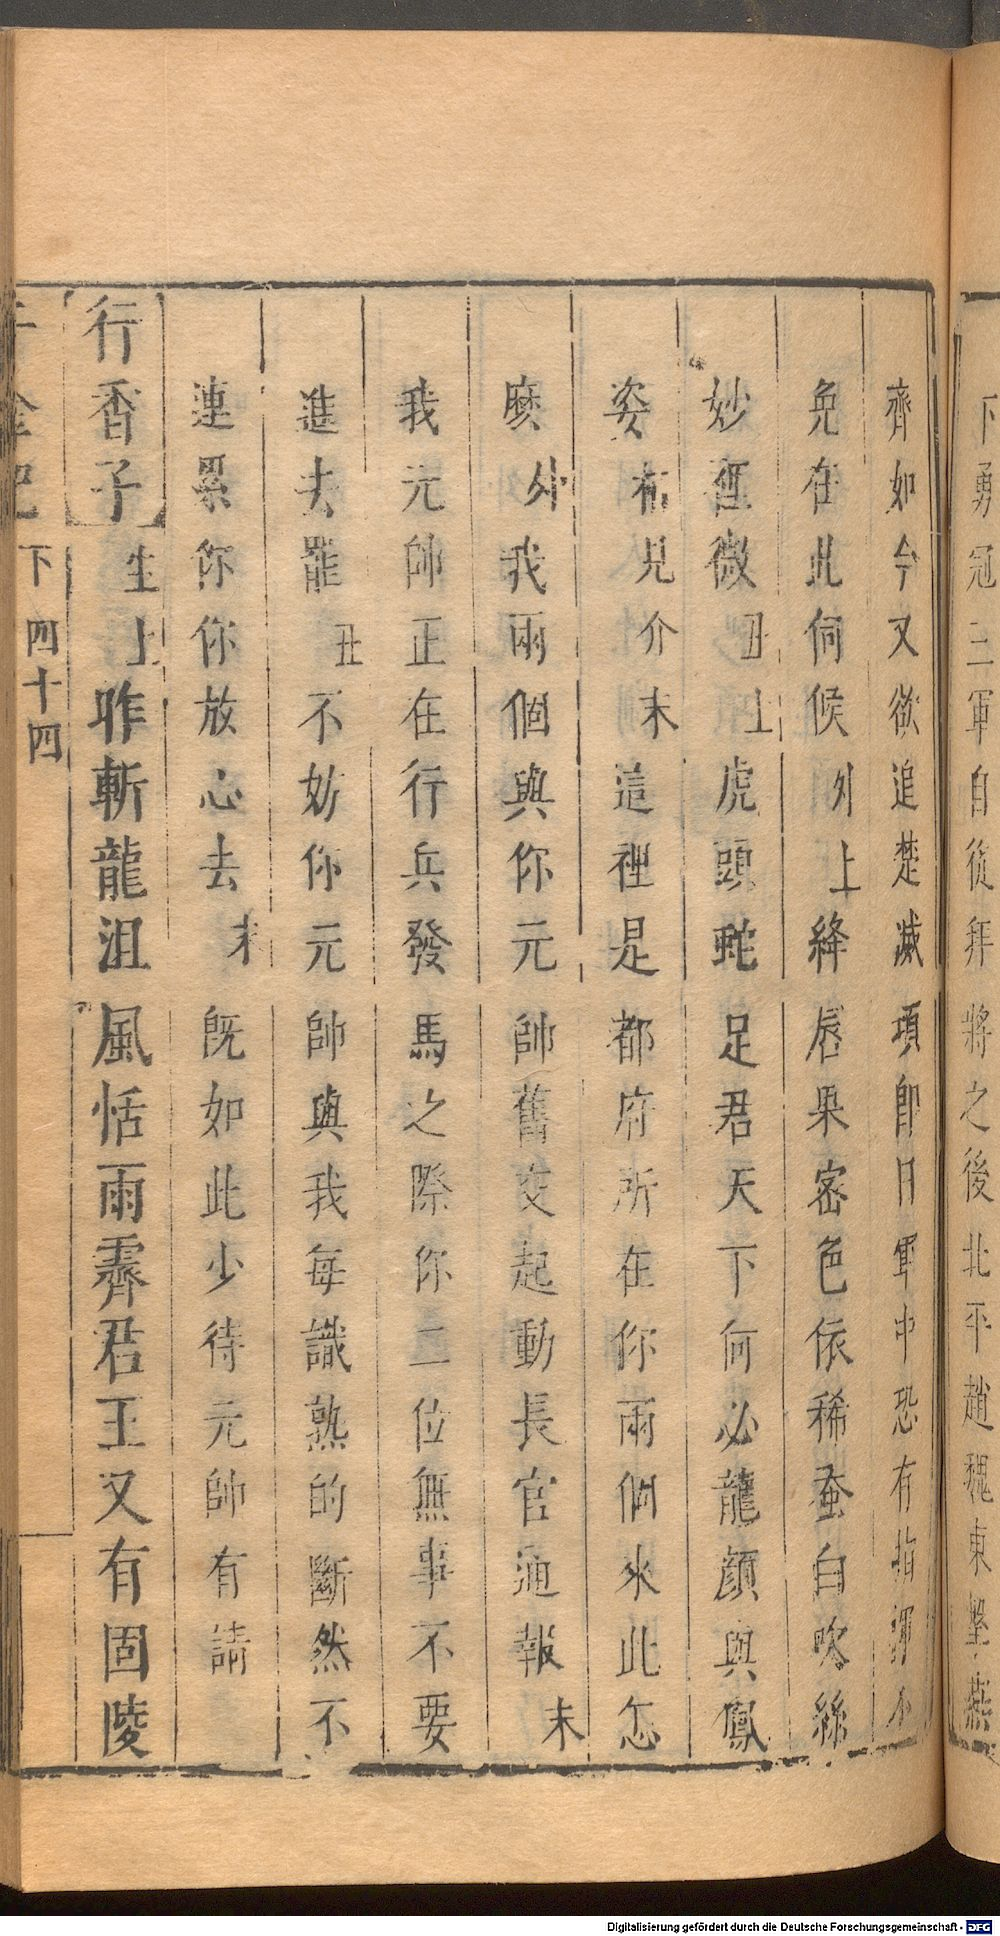 下勇冠三軍自從拜將之後北平趙魏東墼燕
齊如今又欲追楚滅項卽日軍中恐有指揮不
免在此伺候外上絳唇果密色依稀蚕白吹絲
妙哲微丑上虎頭蛇足君天下何必龍顔與鳳
姿相見介末這裡是都府所在你兩個來此怎
麽外我兩個與你元帥舊交起動長官通報末
我元帥正在行兵發馬之際你二位無事不要
進去罷丑不妨你元帥與我每識熟的斷然不
連累你你放心去末旣如此少待元帥有請
行香子生上昨斬龍沮風恬雨霽君王又有固陵
千金記 下 四十四
Digitalisierung gefördert durch die Deutsche Forschungsgemeinschaft - DFG